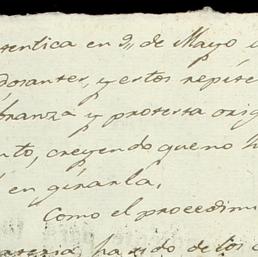 tentica en 9,, de Mayo
dosantes, y estos repite
branza y protesta orig
nto, creyendo que no h
en girarla.
Como el procedimi
ha sido de los